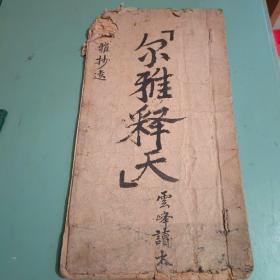 「尔雅释天」
雲峰讀本
雅抄遠